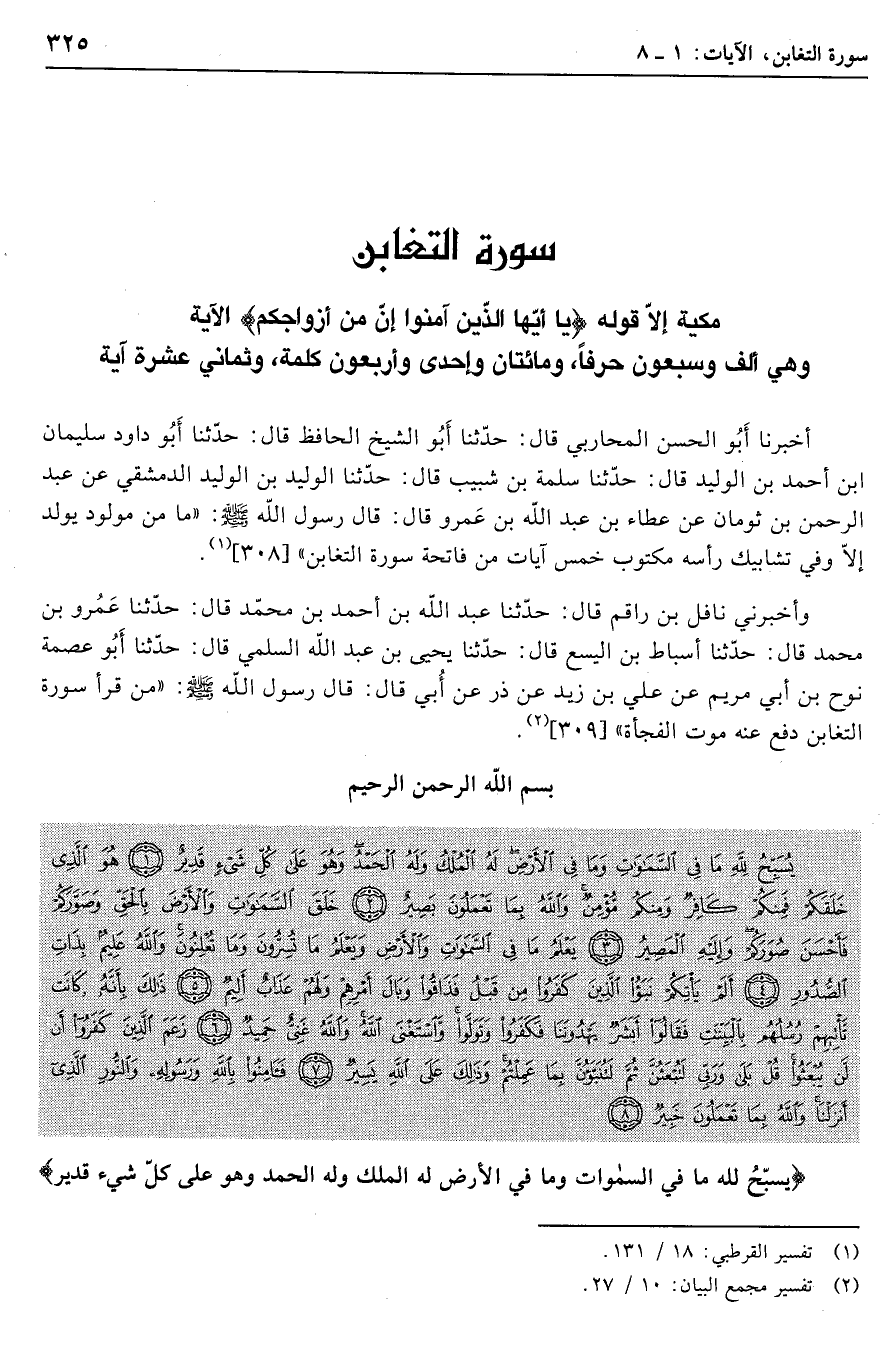 سورة التغابن، الآيات: ١ - ٨
٣٢٥
سورة التغابن
مكية إلاّ قوله ﴿يا أيّها الذّين آمنوا إنّ من أزواجكم﴾ الآية
وهي ألف وسبعون حرفاً، ومائتان وإحدى وأربعون كلمة، وثماني عشرة آية
أخبرنا أَبُو الحسن المحاربي قال: حدّثنا أَبُو الشيخ الحافظ قال: حدّثنا أَبُو داود سليمان
ابن أحمد بن الوليد قال: حدّثنا سلمة بن شبيب قال: حدّثنا الوليد بن الوليد الدمشقي عن عبد
الرحمن بن ثومان عن عطاء بن عبد الله بن عَمرو قال: قال رسول الله ﷺ: «ما من مولود يولد
إلاّ وفي تشابيك رأسه مكتوب خمس آيات من فاتحة سورة التغابن» [٣٠٨](١).
وأخبرني نافل بن راقم قال: حدّثنا عبد الله بن أحمد بن محمّد قال: حدّثنا عَمُرو بن
محمد قال: حدّثنا أسباط بن اليسع قال: حدّثنا يحيى بن عبد الله السلمي قال: حدّثنا أَبُو عصمة
نوح بن أبي مريم عن علي بن زيد عن ذر عن أُبي قال: قال رسول الله ﷺ: «من قرأ سورة
التغابن دفع عنه موت الفجأة» [٣٠٩](٢).
بسم الله الرحمن الرحيم
يُسَبِّحُ لِلَّهِ مَا فِي السَّمَٰوَٰتِ وَمَا فِي الْأَرْضِۖ لَهُ الْمُلْكُ وَلَهُ الْحَمْدُۖ وَهُوَ عَلَىٰ كُلِّ شَيْءٍ قَدِيرٌ ﴿١﴾ هُوَ الَّذِي
خَلَقَكُمْ فَمِنكُمْ كَافِرٌ وَمِنكُم مُّؤْمِنٌۚ وَاللَّهُ بِمَا تَعْمَلُونَ بَصِيرٌ ﴿٢﴾ خَلَقَ السَّمَٰوَٰتِ وَالْأَرْضَ بِالْحَقِّ وَصَوَّرَكُمْ
فَأَحْسَنَ صُوَرَكُمْۖ وَإِلَيْهِ الْمَصِيرُ ﴿٣﴾ يَعْلَمُ مَا فِي السَّمَٰوَٰتِ وَالْأَرْضِ وَيَعْلَمُ مَا تُسِرُّونَ وَمَا تُعْلِنُونَۚ وَاللَّهُ عَلِيمٌ بِذَاتِ
الصُّدُورِ ﴿٤﴾ أَلَمْ يَأْتِكُمْ نَبَؤُا الَّذِينَ كَفَرُوا مِن قَبْلُ فَذَاقُوا وَبَالَ أَمْرِهِمْ وَلَهُمْ عَذَابٌ أَلِيمٌ ﴿٥﴾ ذَٰلِكَ بِأَنَّهُ كَانَت
تَّأْتِيهِمْ رُسُلُهُم بِالْبَيِّنَٰتِ فَقَالُوا أَبَشَرٌ يَهْدُونَنَا فَكَفَرُوا وَتَوَلَّواۚ وَّاسْتَغْنَى اللَّهُۚ وَاللَّهُ غَنِيٌّ حَمِيدٌ ﴿٦﴾ زَعَمَ الَّذِينَ كَفَرُوا أَن
لَّن يُبْعَثُواۚ قُلْ بَلَىٰ وَرَبِّي لَتُبْعَثُنَّ ثُمَّ لَتُنَبَّؤُنَّ بِمَا عَمِلْتُمْۚ وَذَٰلِكَ عَلَى اللَّهِ يَسِيرٌ ﴿٧﴾ فَـَٔامِنُوا بِاللَّهِ وَرَسُولِهِ وَالنُّورِ الَّذِي
أَنزَلْنَاۚ وَاللَّهُ بِمَا تَعْمَلُونَ خَبِيرٌ ﴿٨﴾
﴿يسبّحُ لله ما في السمٰوات وما في الأرض له الملك وله الحمد وهو على كلّ شيء قدير﴾
(١) تفسير القرطبي: ١٨ / ١٣١.
(٢) تفسير مجمع البيان: ١٠ / ٢٧.